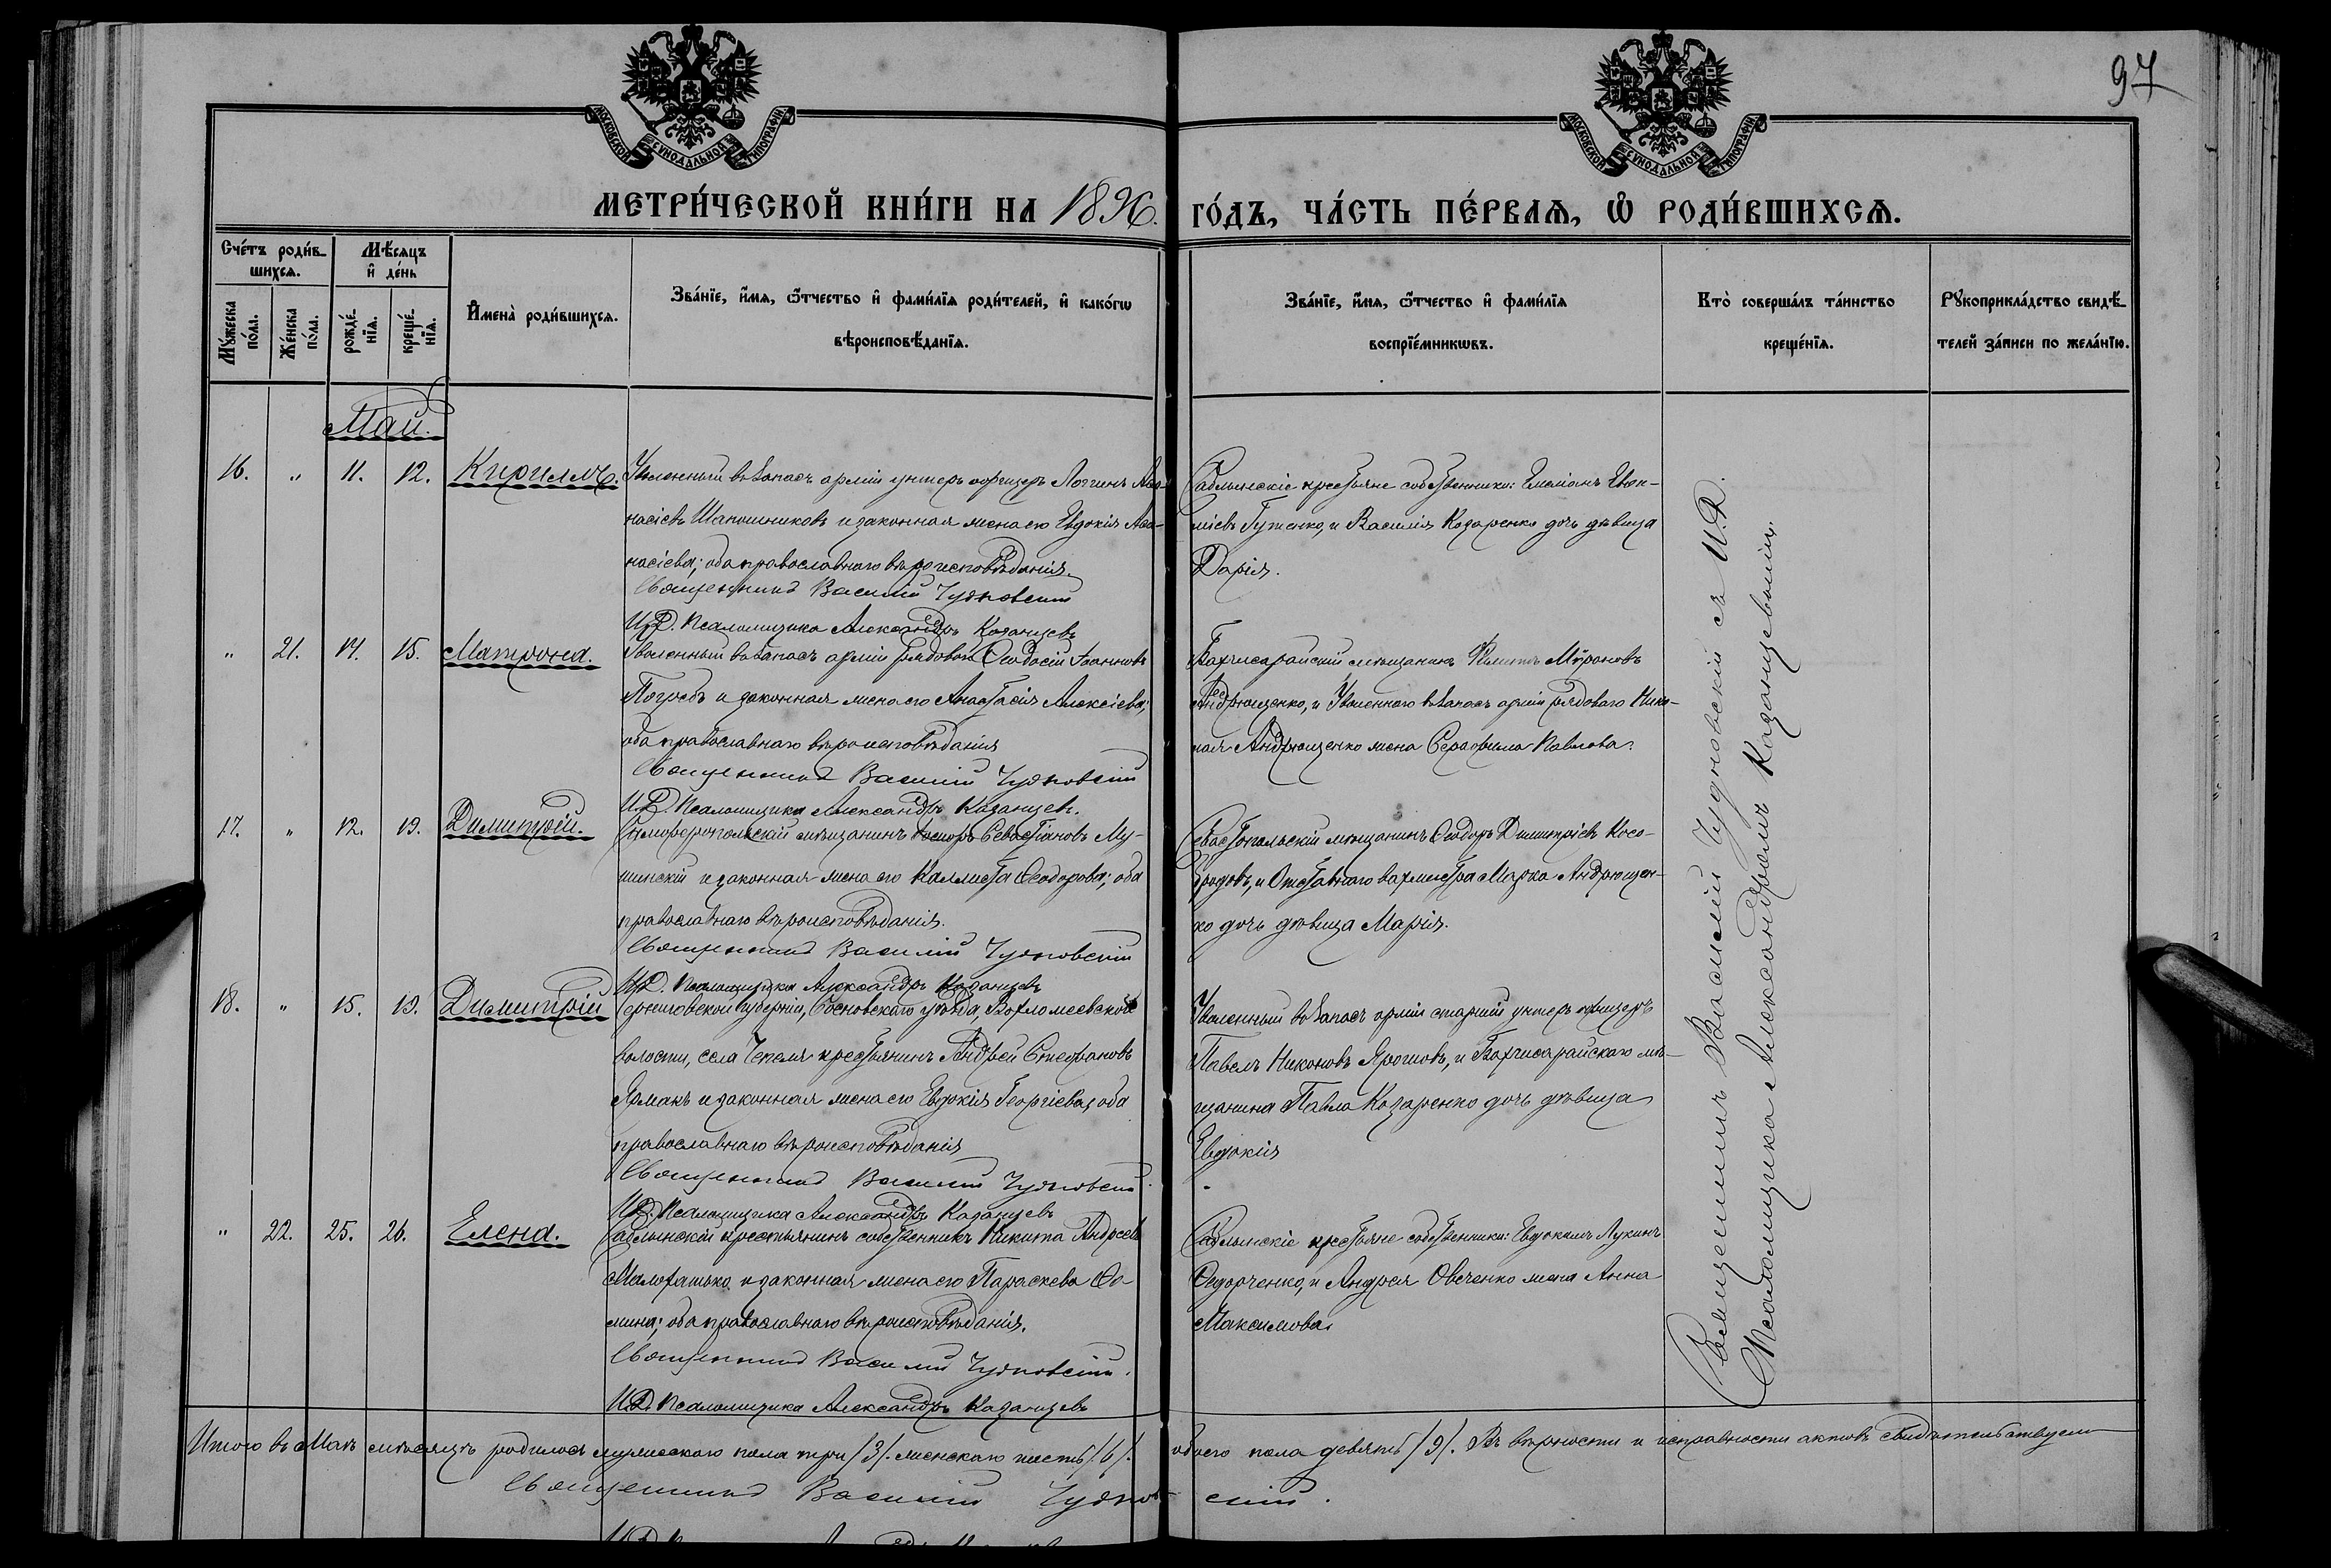 97
МОСКОВСКОЙ СѴНОДАЛЬНОЙ ТИПОГРАФІИ
МОСКОВСКОЙ СѴНОДАЛЬНОЙ ТИПОГРАФІИ
МЕТРИ́ЧЕСКОЙ КНИ́ГИ НА 1896. ГО́ДЪ, ЧА́СТЬ ПЕ́РВАѦ, Ѡ҆ РОДИ́ВШИХСѦ.
Сче́тъ роди́в-
шихсѧ.
Мѣ́сѧцъ
и҆ де́нь
Мꙋ́жеска
по́ла.
Же́нска
по́ла.
рожде́-
нїѧ.
креще́-
нїѧ.
И҆мена̀ роди́вшихсѧ.
Зва́нїе, и҆́мѧ, ѻ҆́тчество и҆ фами́лїѧ роди́телей, и҆ како́гѡ
вѣроисповѣ́данїѧ.
Зва́нїе, и҆́мѧ, ѻ҆́тчество и҆ фами́лїѧ
воспрїе́мникѡвъ.
Кто̀ соверша́лъ та́инство
креще́нїѧ.
Рꙋкоприкла́дство свидѣ́-
телей за́писи по жела́нїю.
Май.
16. " 11. 12. Кириллъ.
Уволенный въ запасъ арміи унтеръ офицеръ Логгинъ Аѳа-
насіевъ Шапошниковъ и законная жена его Евдокія Аѳа-
насіева; оба православнаго вѣроисповѣданія.
Священникъ Василій Чудновскій
И.Д. Псаломщика Александръ Казанцевъ
Саблынскіе крестьяне собственники: Емеліанъ
Гутенко, и Василія Козаренко дочь дѣвица
Дарія.
" 21. 14. 15. Матрона.
Уволенный въ запасъ арміи рядовой Ѳеодосій Іоанновъ
Погребъ и законная жена его Анастасія Алексіева;
оба православнаго вѣроисповѣданія
Священникъ Василій Чудновскій
И.Д. Псаломщика Александръ Казанцевъ.
Бахчисарайскій мѣщанинъ Филиппъ Мѵроновъ
Андрющенко, и Уволеннаго въ запасъ арміи рядоваго Нико-
лая Андрющенко жена Серафима Павлова.
17. " 12. 19. Димитрій.
Симферопольскій мѣщанинъ Севастіановъ Му-
шинскій и законная жена его Каллиста Ѳеодорова; оба
православнаго вѣроисповѣданія.
Священникъ Василій Чудновскій
И.Д. Псаломщика Александръ Казанцевъ
Севастопольскій мѣщанинъ Ѳеодоръ Димитріевъ Косо-
бродовъ, и Отставнаго вахмистра Марка Андрющен-
ко дочь дѣвица Марія.
18. " 15. 19. Димитрій
Черниговской губерніи, Сосновскаго уѣзда,
волости, села крестьянинъ Андрей Стефановъ
Ярмакъ и законная жена его Евдокія Георгіева; оба
православнаго вѣроисповѣданія
Священникъ Василій Чудновскій.
И.Д. Псаломщика Александръ Казанцевъ
Уволенный въ запасъ арміи старшій унтеръ офицеръ
Павелъ Никоновъ Ярошовъ, и Бахчисарайскаго мѣ-
щанина Павла Козаренко дочь дѣвица
Евдокія
" 22. 25. 26. Елена.
Саблынскій крестьянинъ собственникъ Никита Андреевъ
и законная жена его Параскева Ѳо-
мина; оба православнаго вѣроисповѣданія.
Священникъ Василій Чудновскій.
И.Д. Псаломщика Александръ Казанцевъ
Саблынскіе крестьяне собственники: Евдокимъ Лукинъ
Ѳедорченко, и Андрея Овченко жена Анна
Максимова.
Священникъ Василій Чудновскій съ И.Д.
Псаломщика Александромъ Казанцевымъ.
Итого въ Маѣ мѣсяцѣ родилось мужескаго пола три /3/. женскаго шесть /6/. обоего пола девять /9/. Въ вѣрности и исправности актовъ свидѣтельствуемъ
Священникъ Василій Чудновскій.